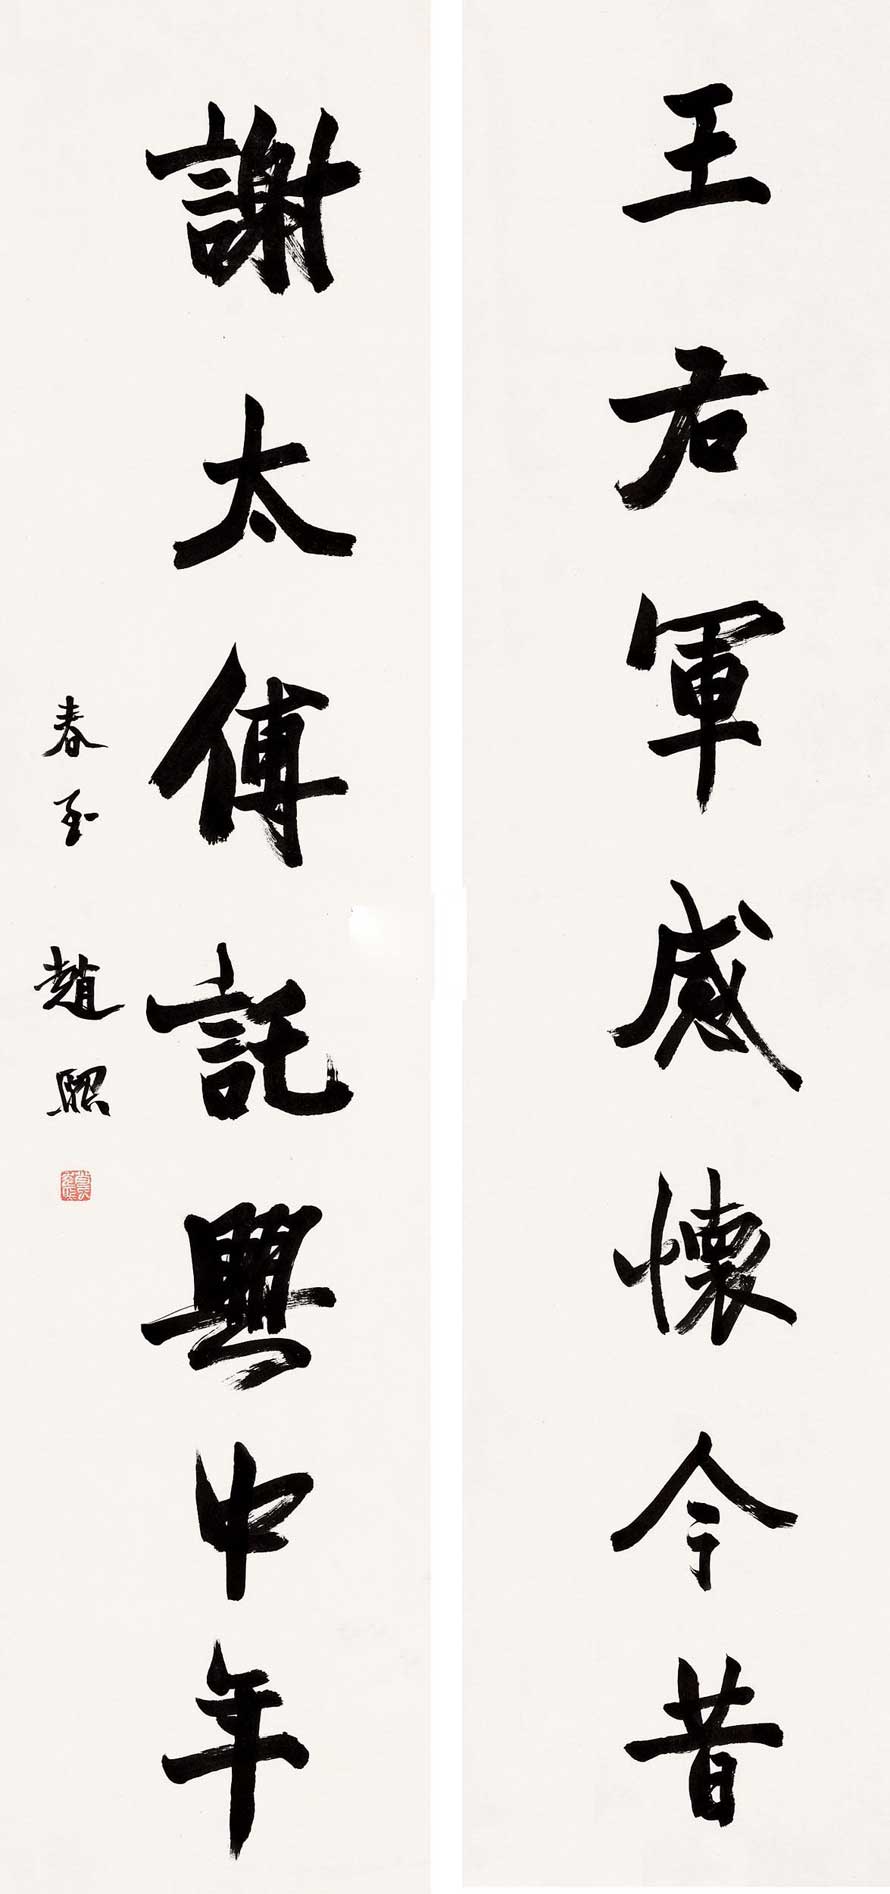 王右軍感懷今昔
謝太傅託興中年
春至 趙熙